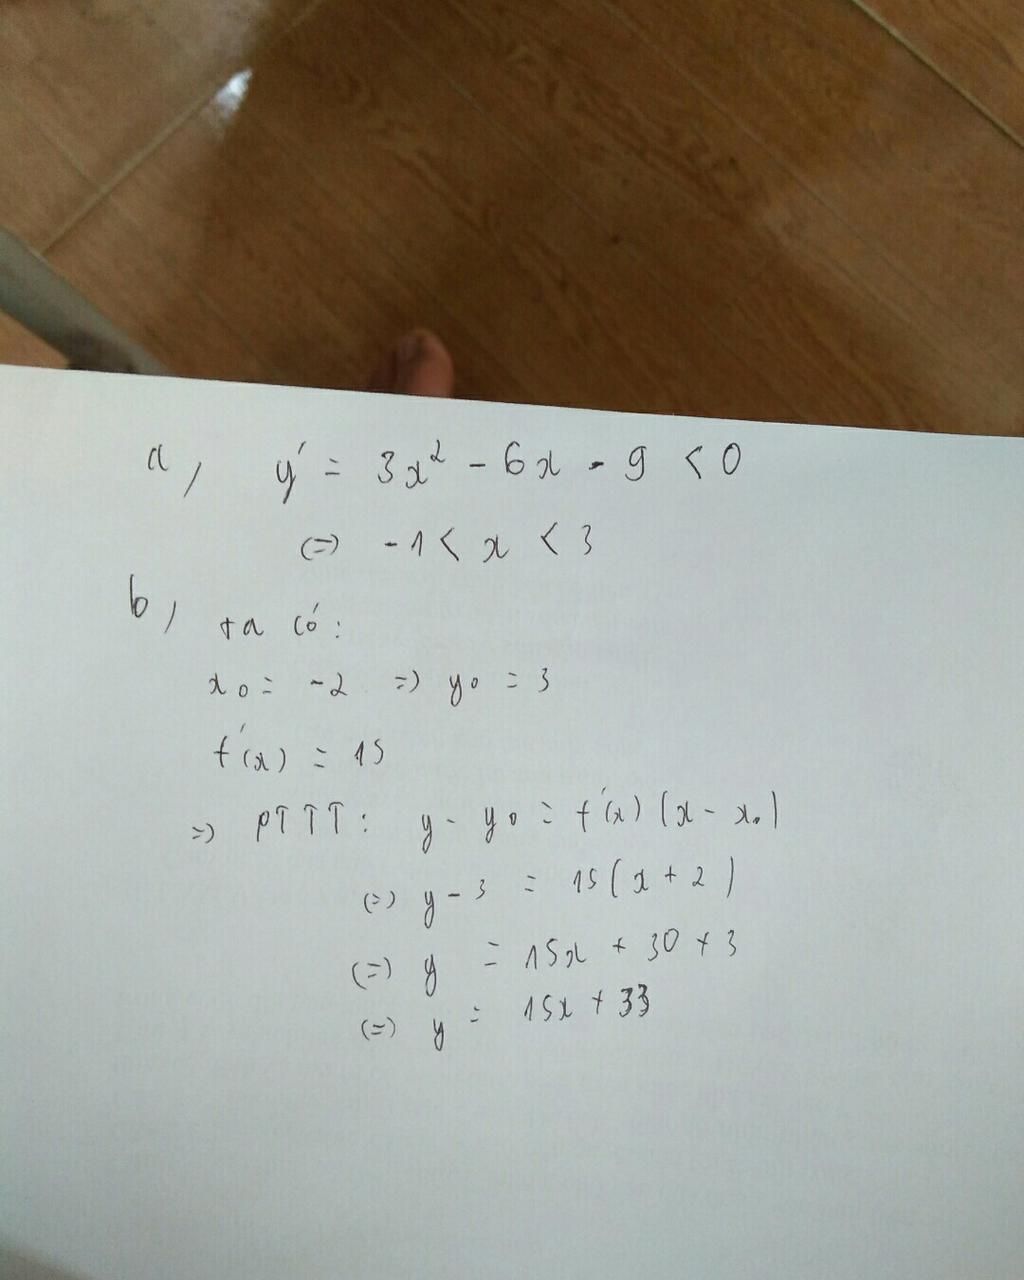 a, y' = 3x² - 6x - 9 < 0
(=) -1 < x < 3
b, ta có:
x₀ = -2 => y₀ = 3
f'(x) = 15
=> PTTT: y - y₀ = f'(x) (x - x₀)
(=) y - 3 = 15(x + 2)
(=) y = 15x + 30 + 3
(=) y = 15x + 33